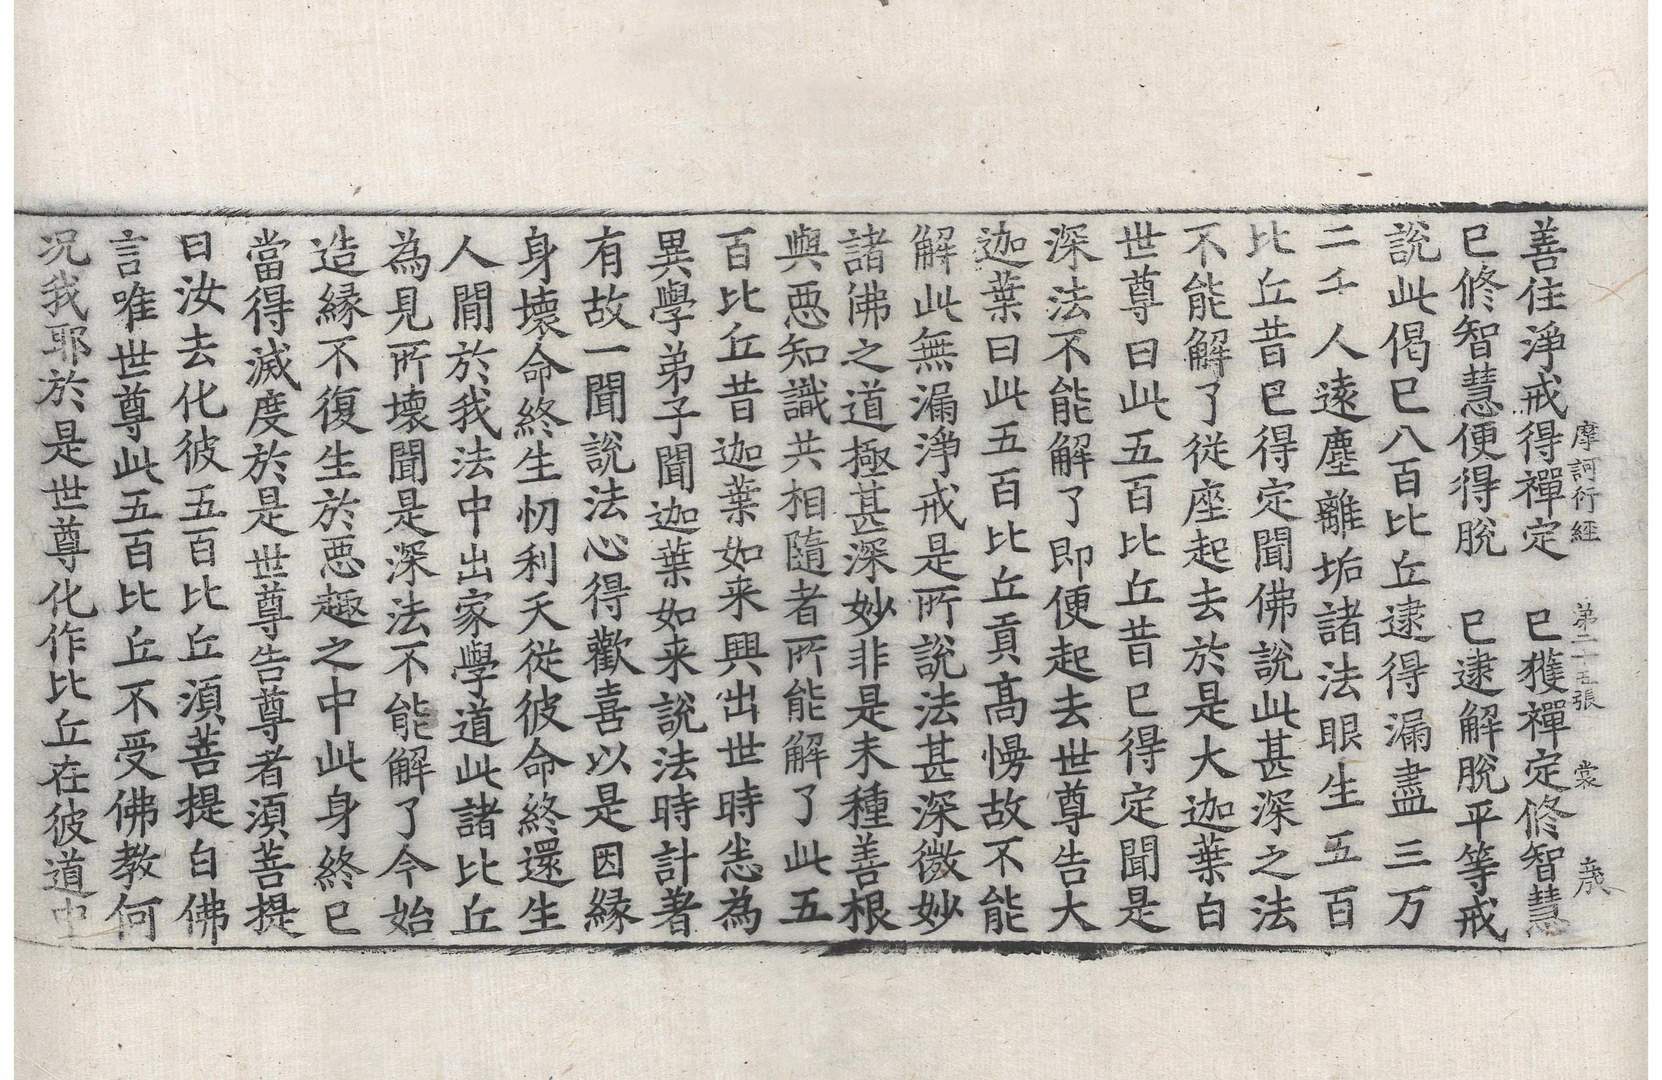 摩訶衍經 第二十五張 裳 𡻕
善住淨戒得禪定 巳獲禪定修智慧
巳修智慧便得脫 巳逮解脫平等戒
說此偈巳八百比丘逮得漏盡三万
二千人遠塵離垢諸法眼生五百
比丘昔巳得定聞佛說此甚深之法
不能解了從座起去於是大迦葉白
世尊曰此五百比丘昔巳得定聞是
深法不能解了即便起去世尊告大
迦葉曰此五百比丘貢高慢故不能
解此無漏淨戒是所說法甚深微妙
諸佛之道極甚深妙非是未種善根
與惡知識共相隨者所能解了此五
百比丘昔迦葉如来興出世時悉為
異學弟子聞迦葉如来說法時計著
有故一聞說法心得歡喜以是因緣
身壞命終生忉利天從彼命終還生
人閒於我法中出家學道此諸比丘
為見所壞聞是深法不能解了今始
造緣不復生於惡趣之中此身終巳
當得滅度於是世尊告尊者湏菩提
曰汝去化彼五百比丘湏菩提白佛
言唯世尊此五百比丘不受佛教何
况我耶於是世尊化作比丘在彼道中